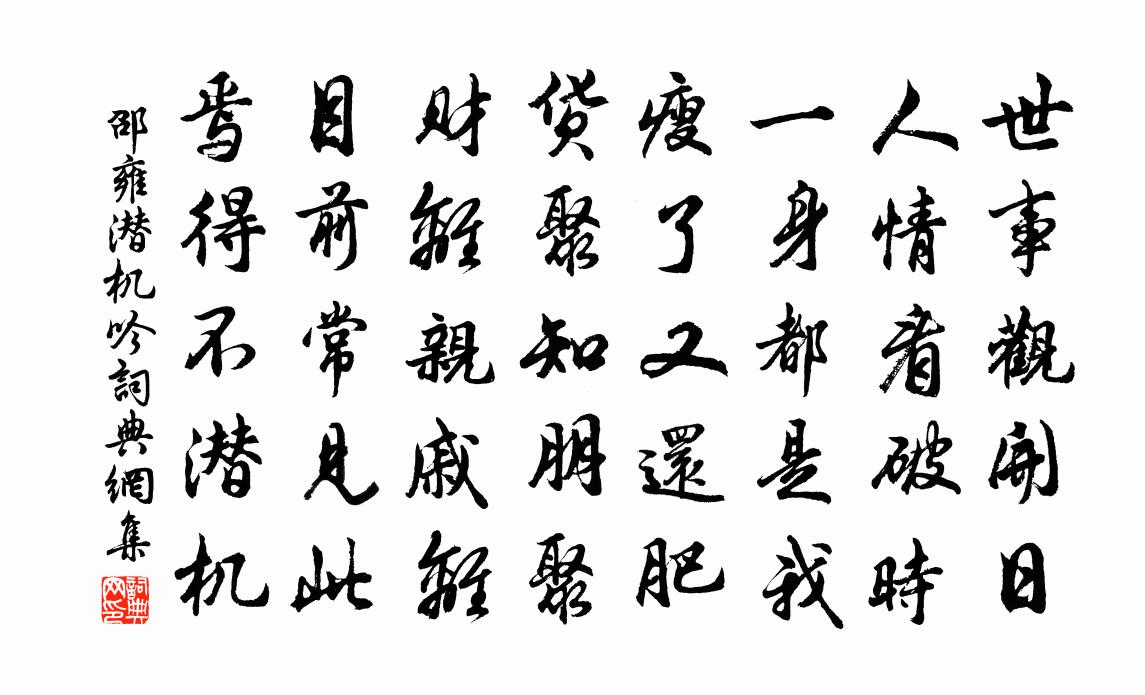 世事觀開日
人情看破時
一身都是我
瘦了又還肥
貨聚知朋聚
財離親戚離
目前常見此
焉得不潜机
邵雍潜机吟詞典網集
詞典网印